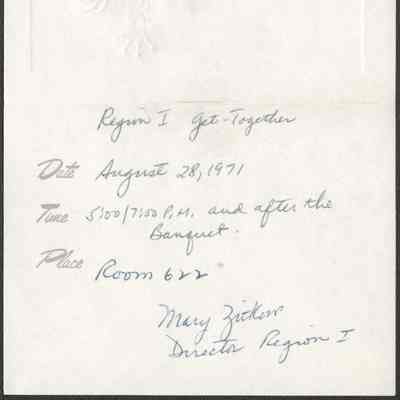 Region I Get-Together
Date August 28, 1971
Time 5:00/7:00 P.M. and after the
Banquet.
Place Room 622
Mary
Director Region I